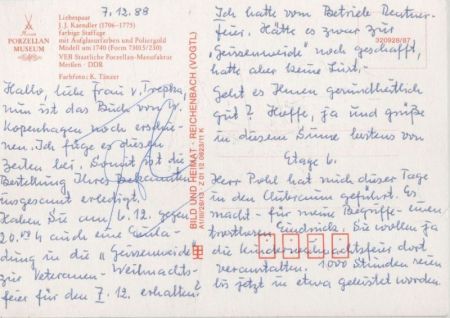 7.12.88
MEISSEN
PORZELLAN
MUSEUM
Liebespaar
J. J. Kaendler (1706–1775)
farbige Staffage
mit Aufglasurfarben und Poliergold
Modell um 1740 (Form 73015/230)
VEB Staatliche Porzellan-Manufaktur
Meißen · DDR
Fachfoto: K. Tänzer
Hallo, liebe Frau v. Trepka,
nun ist das Buch von
Kopenhagen noch erschie-
nen. Ich füge es diesen
Zeilen bei. Somit ist die
Bestellung Ihres
insgesamt erledigt.
Haben Sie am 6.12. gegen
20.00 h auch eine Einla-
dung in die "Geusenweide"
zur Veteranen-Weihnachts-
feier für den 7.12. erhalten?
BILD UND HEIMAT · REICHENBACH (VOGTL)
A1/III/26/13 Z 01 12 0923/11 K
Ich hatte vom Betriebe Rentner-
feier. Hätte es zwar zur
"Geusenweide" noch geschafft,
hatte aber keine Lust.-
320928/87
Geht es Ihnen gesundheitlich
gut? Hoffe, ja und grüße
in diesem Sinne bestens von
Etage 6.
Herr Pohl hat mich dieser Tage
in den Clubraum geführt. Es
macht - für meine Begriffe - einen
Eindruck. Sie wollen ja
die Kinderweihnachtsfeier dort
veranstalten. 1000 Stunden seien
bis jetzt in etwa geleistet worden.